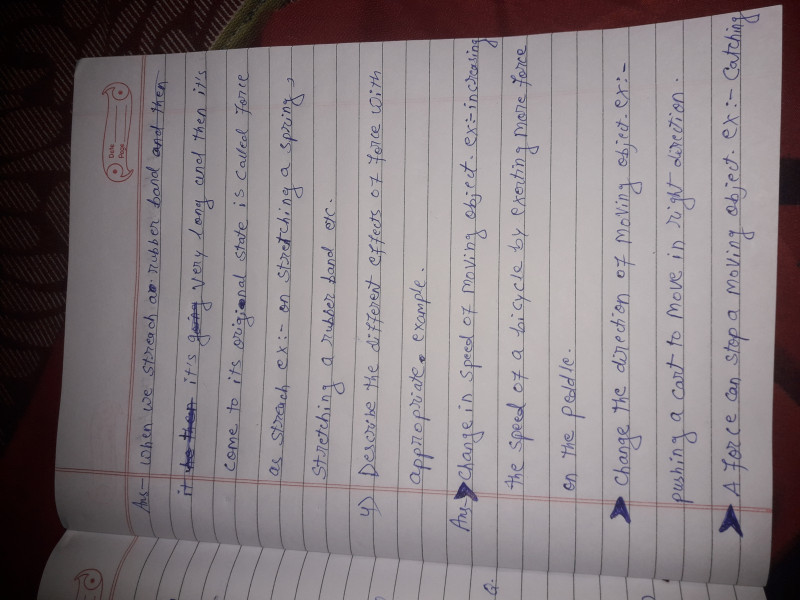 Date
Page
Ans- when we streach a rubber band and then
it he then it's going very long and then it's
come to its origional state is called force
as streach ex:- on stretching a spring,
stretching a rubber band etc.
4) Describe the different effects of force with
appropriate example.
Ans- Change in speed of moving object. ex:- increasing
the speed of a bicycle by exerting more force
on the peddle.
Change the direction of moving object. ex:-
pushing a cart to move in right direction.
A force can stop a moving object. ex:- Catching
Q.